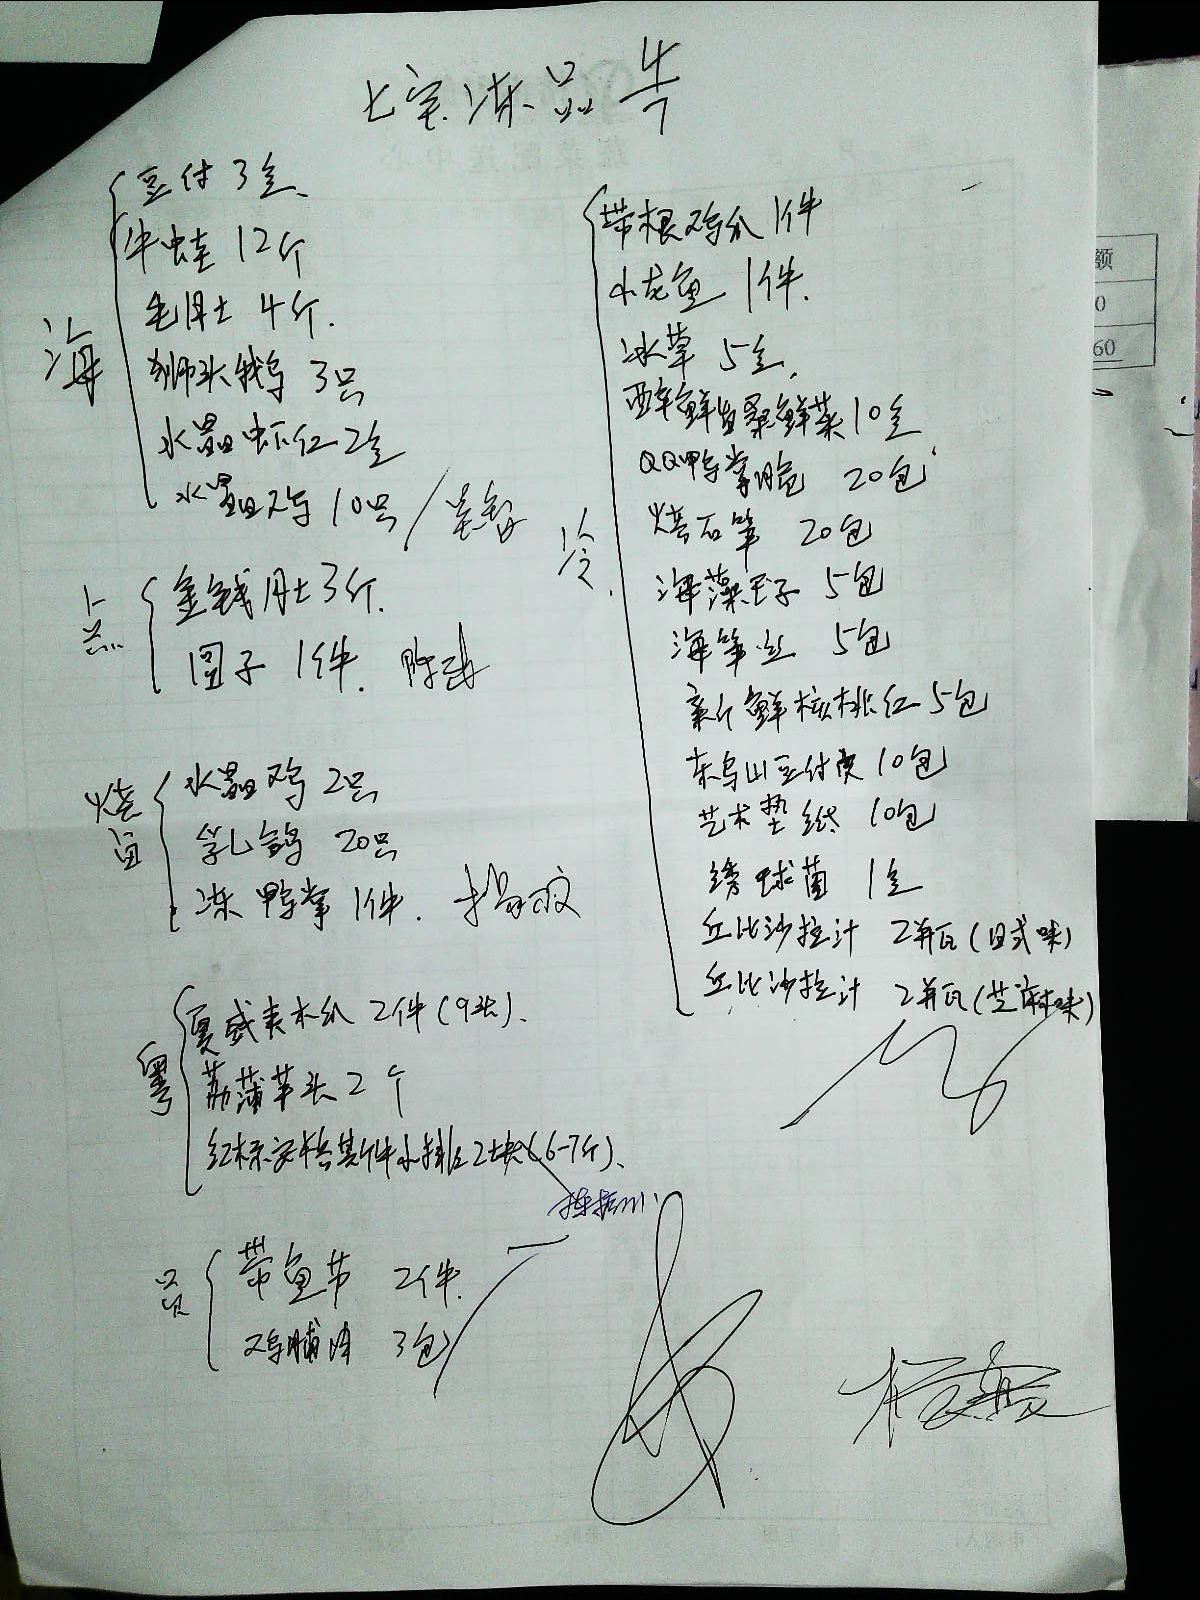 七宝冻品 4/7
海
豆付 3盒、
牛蛙 12斤
毛月土 4斤.
狮头鹅 3只
水晶虾仁 2盒
水晶鸡 10只
点
金钱月土 3斤.
圆子 1件.
烧
水晶鸡 2只
乳鸽 20只
冻鸭掌 1件.
粤
夏威夷木瓜 2件(9头)、
荔蒲芋头 2个
小排 2块(6-7斤)、
员
带鱼节 2件.
鸡脯肉 3包
冷.
带根鸡爪 1件
小龙鱼 1件.
冰草 5盒、
10盒
QQ鸭掌脆 20包
烧石笋 20包
海藻王子 5包
海笋丝 5包
新鲜核桃仁 5包
东乌山豆付皮 10包
艺术垫纸 10包
绣球菌 1盒
丘比沙拉汁 2瓶(日式味)
丘比沙拉汁 2瓶(芝麻味)
额
0
60